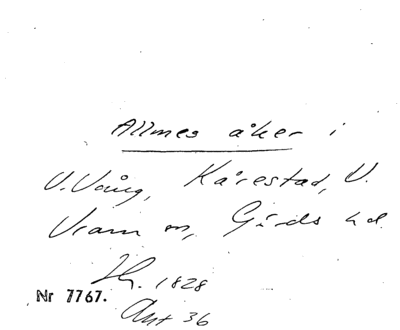 Allmes åker i
V. Vång, Kårestad, V.
Vram sn, Gärds hd.
H. 1828
Nr 7767.
Ant 36